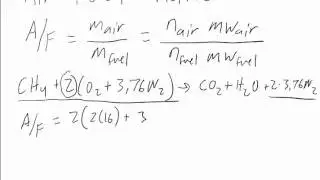 A/F = m_air / m_fuel = n_air MW_air / n_fuel MW_fuel
CH4 + 2(O2 + 3,76N2) → CO2 + H2O + 2·3,76N2
A/F = 2(2(16) + 3